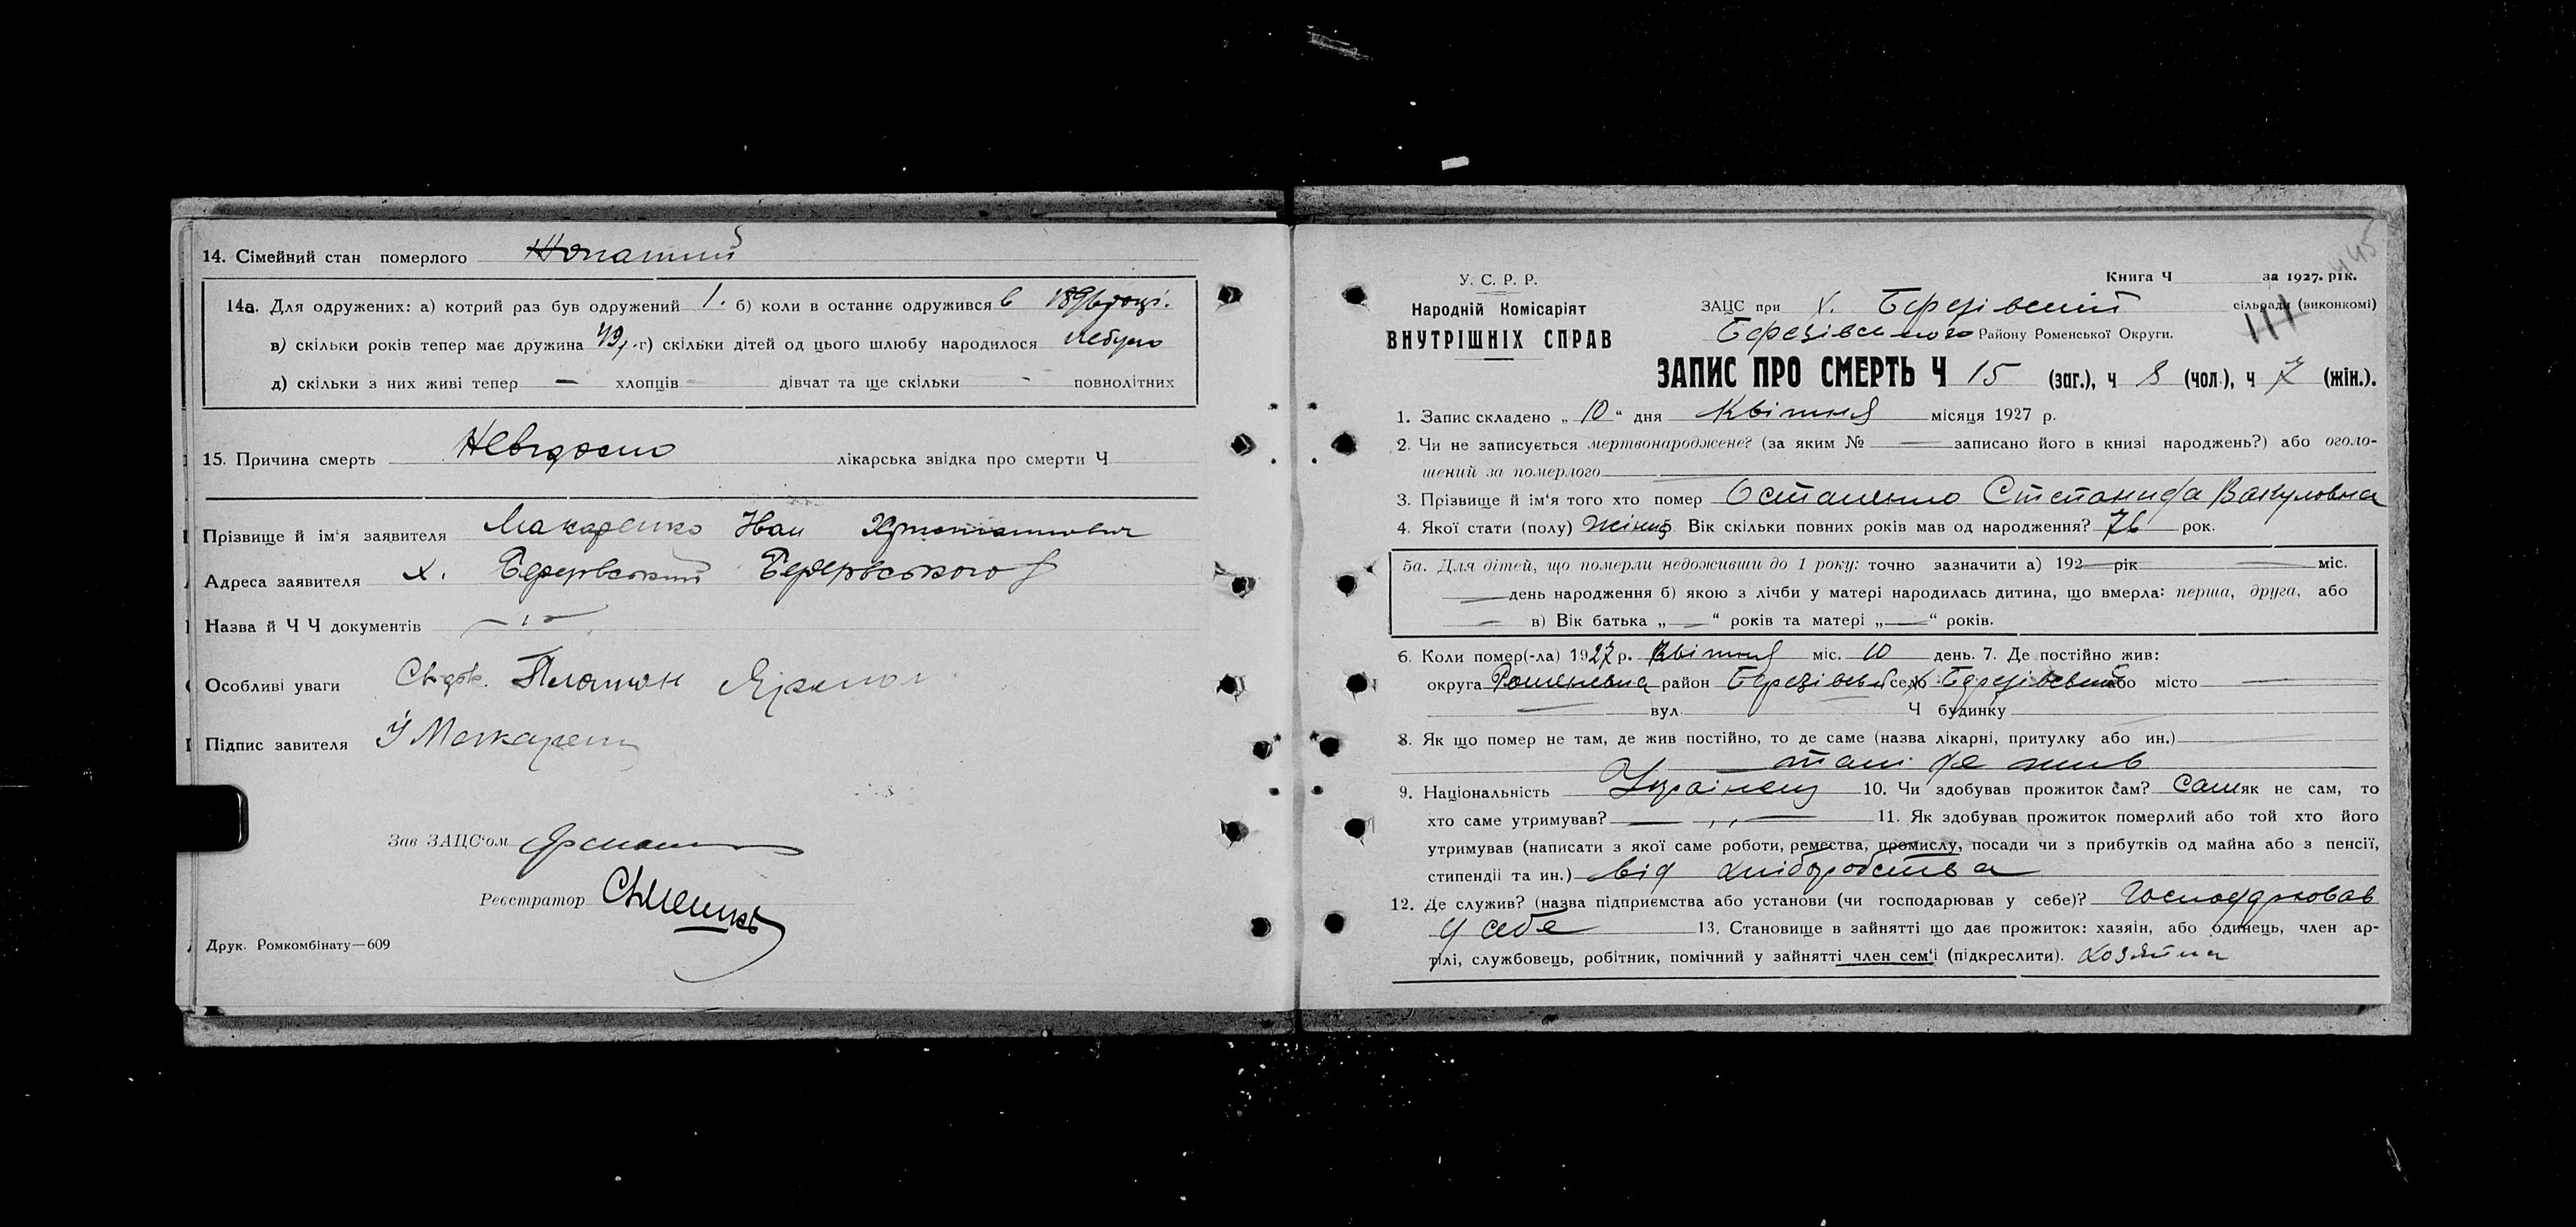 14. Сімейний стан померлого Жонатий
14а. Для одружених: а) котрий раз був одружений 1. б) коли в останнє одружився в 1896 році.
в) скільки років тепер має дружина 49 р. г) скільки дітей од цього шлюбу народилося небуло
д) скільки з них живі тепер — хлопців — дівчат та ще скільки - повнолітних
15. Причина смерть Невідомо лікарська звідка про смерти Ч
Прізвище й ім'я заявителя Макаренко Іван
Адреса заявителя х. Березовський Березовського р
Назва й Ч Ч документів
Особливі уваги Свідок. Платон
Підпис завителя І Макарен
Зав ЗАЦС'ом
Реєстратор
Друк. Ромкомбінату—609
445
У. С. Р. Р.
Народній Комісаріят
ВНУТРІШНІХ СПРАВ
Книга Ч за 1927. рік.
ЗАЦС при х. Березівській сільради (виконкомі)
Березівського Району Роменської Округи.
111
ЗАПИС ПРО СМЕРТЬ Ч 15 (заг.), ч 8 (чол.), ч 7 (жін.).
1. Запис складено „ 10 “ дня Квітня місяця 1927 р.
2. Чи не записується мертвонароджене? (за яким № — записано його в книзі народжень?) або оголо-
шений за померлого —
3. Прізвище й ім'я того хто помер Остапенко Степанида Вакуловна
4. Якої стати (полу) Жіноч Вік скільки повних років мав од народження? 76 рок.
5а. Для дітей, що померли недоживши до 1 року: точно зазначити а) 192 — рік — міс.
— день народження б) якою з лічби у матері народилась дитина, що вмерла: перша, друга, або
— в) Вік батька „ — “ років та матері „ — “ років.
6. Коли помер(-ла) 1927 р. Квітня міс. 10 день. 7. Де постійно жив:
округа Роменська район Березівськ село х Березівський або місто —
— вул. Ч будинку
8. Як що помер не там, де жив постійно, то де саме (назва лікарні, притулку або ин.)
там де жив
9. Національність Українец 10. Чи здобував прожиток сам? Сам як не сам, то
хто саме утримував? — „ — 11. Як здобував прожиток померлий або той хто його
утримував (написати з якої саме роботи, ремества, промислу, посади чи з прибутків од майна або з пенсії,
стипендії та ин.) від хліборобства
12. Де служив? (назва підприємства або установи (чи господарював у себе)? Господарював
у себе 13. Становище в зайнятті що дає прожиток: хазяін, або одинець, член ар-
тілі, службовець, робітник, помічний у зайнятті член сем'ї (підкреслити). Хозяйка